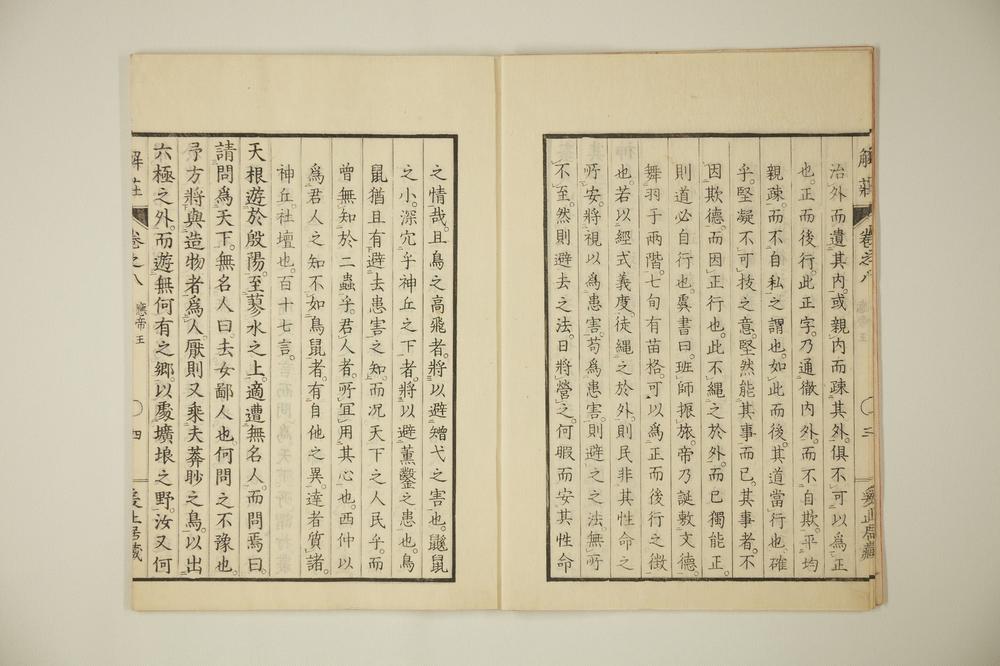 解莊 卷之八 應帝王 三 爰止居藏
治外而遺其内。或親内而疎其外。俱不可以爲正
也。正而後行。此正字。乃通徹内外。而不自欺。平均
親疎。而不自私之謂也。如此而後。其道當行也。確
乎。堅凝不可技之意。堅然能其事而已。其事者。不
因欺德。而因正行也。此不繩之於外。而已獨能正。
則道必自行也。虞書曰。班師振旅。帝乃誕敷文德。
舞羽于兩階。七旬有苗格。可以爲正而後行之徴
也。若以經式義度。徒繩之於外。則民非其性命之
所安。將視以爲患害。苟爲患害。則避之之法。無所
不至。然則避去之法。日將營之。何暇而安其性命
之情哉。且鳥之高飛者。將以避矰弋之害也。鼷鼠
之小。深穴乎神丘之下者。將以避薫鑿之患也。鳥
鼠猶且有避去患害之知。而况天下之人民乎。而
曽無知於二蟲乎。君人者。所宜用其心也。西仲以
爲君人之知不如鳥鼠者。有自他之異。達者質諸。
神丘。社壇也。百十七言。
天根遊於殷陽。至蓼水之上。適遭無名人。而問焉曰。
請問爲天下。無名人曰。去女鄙人也。何問之不豫也。
予方將與造物者爲人。厭則又乘夫莽眇之鳥。以出
六極之外。而遊無何有之鄉。以處壙埌之野。汝又何
解莊 卷之八 應帝王 四 爰止居藏